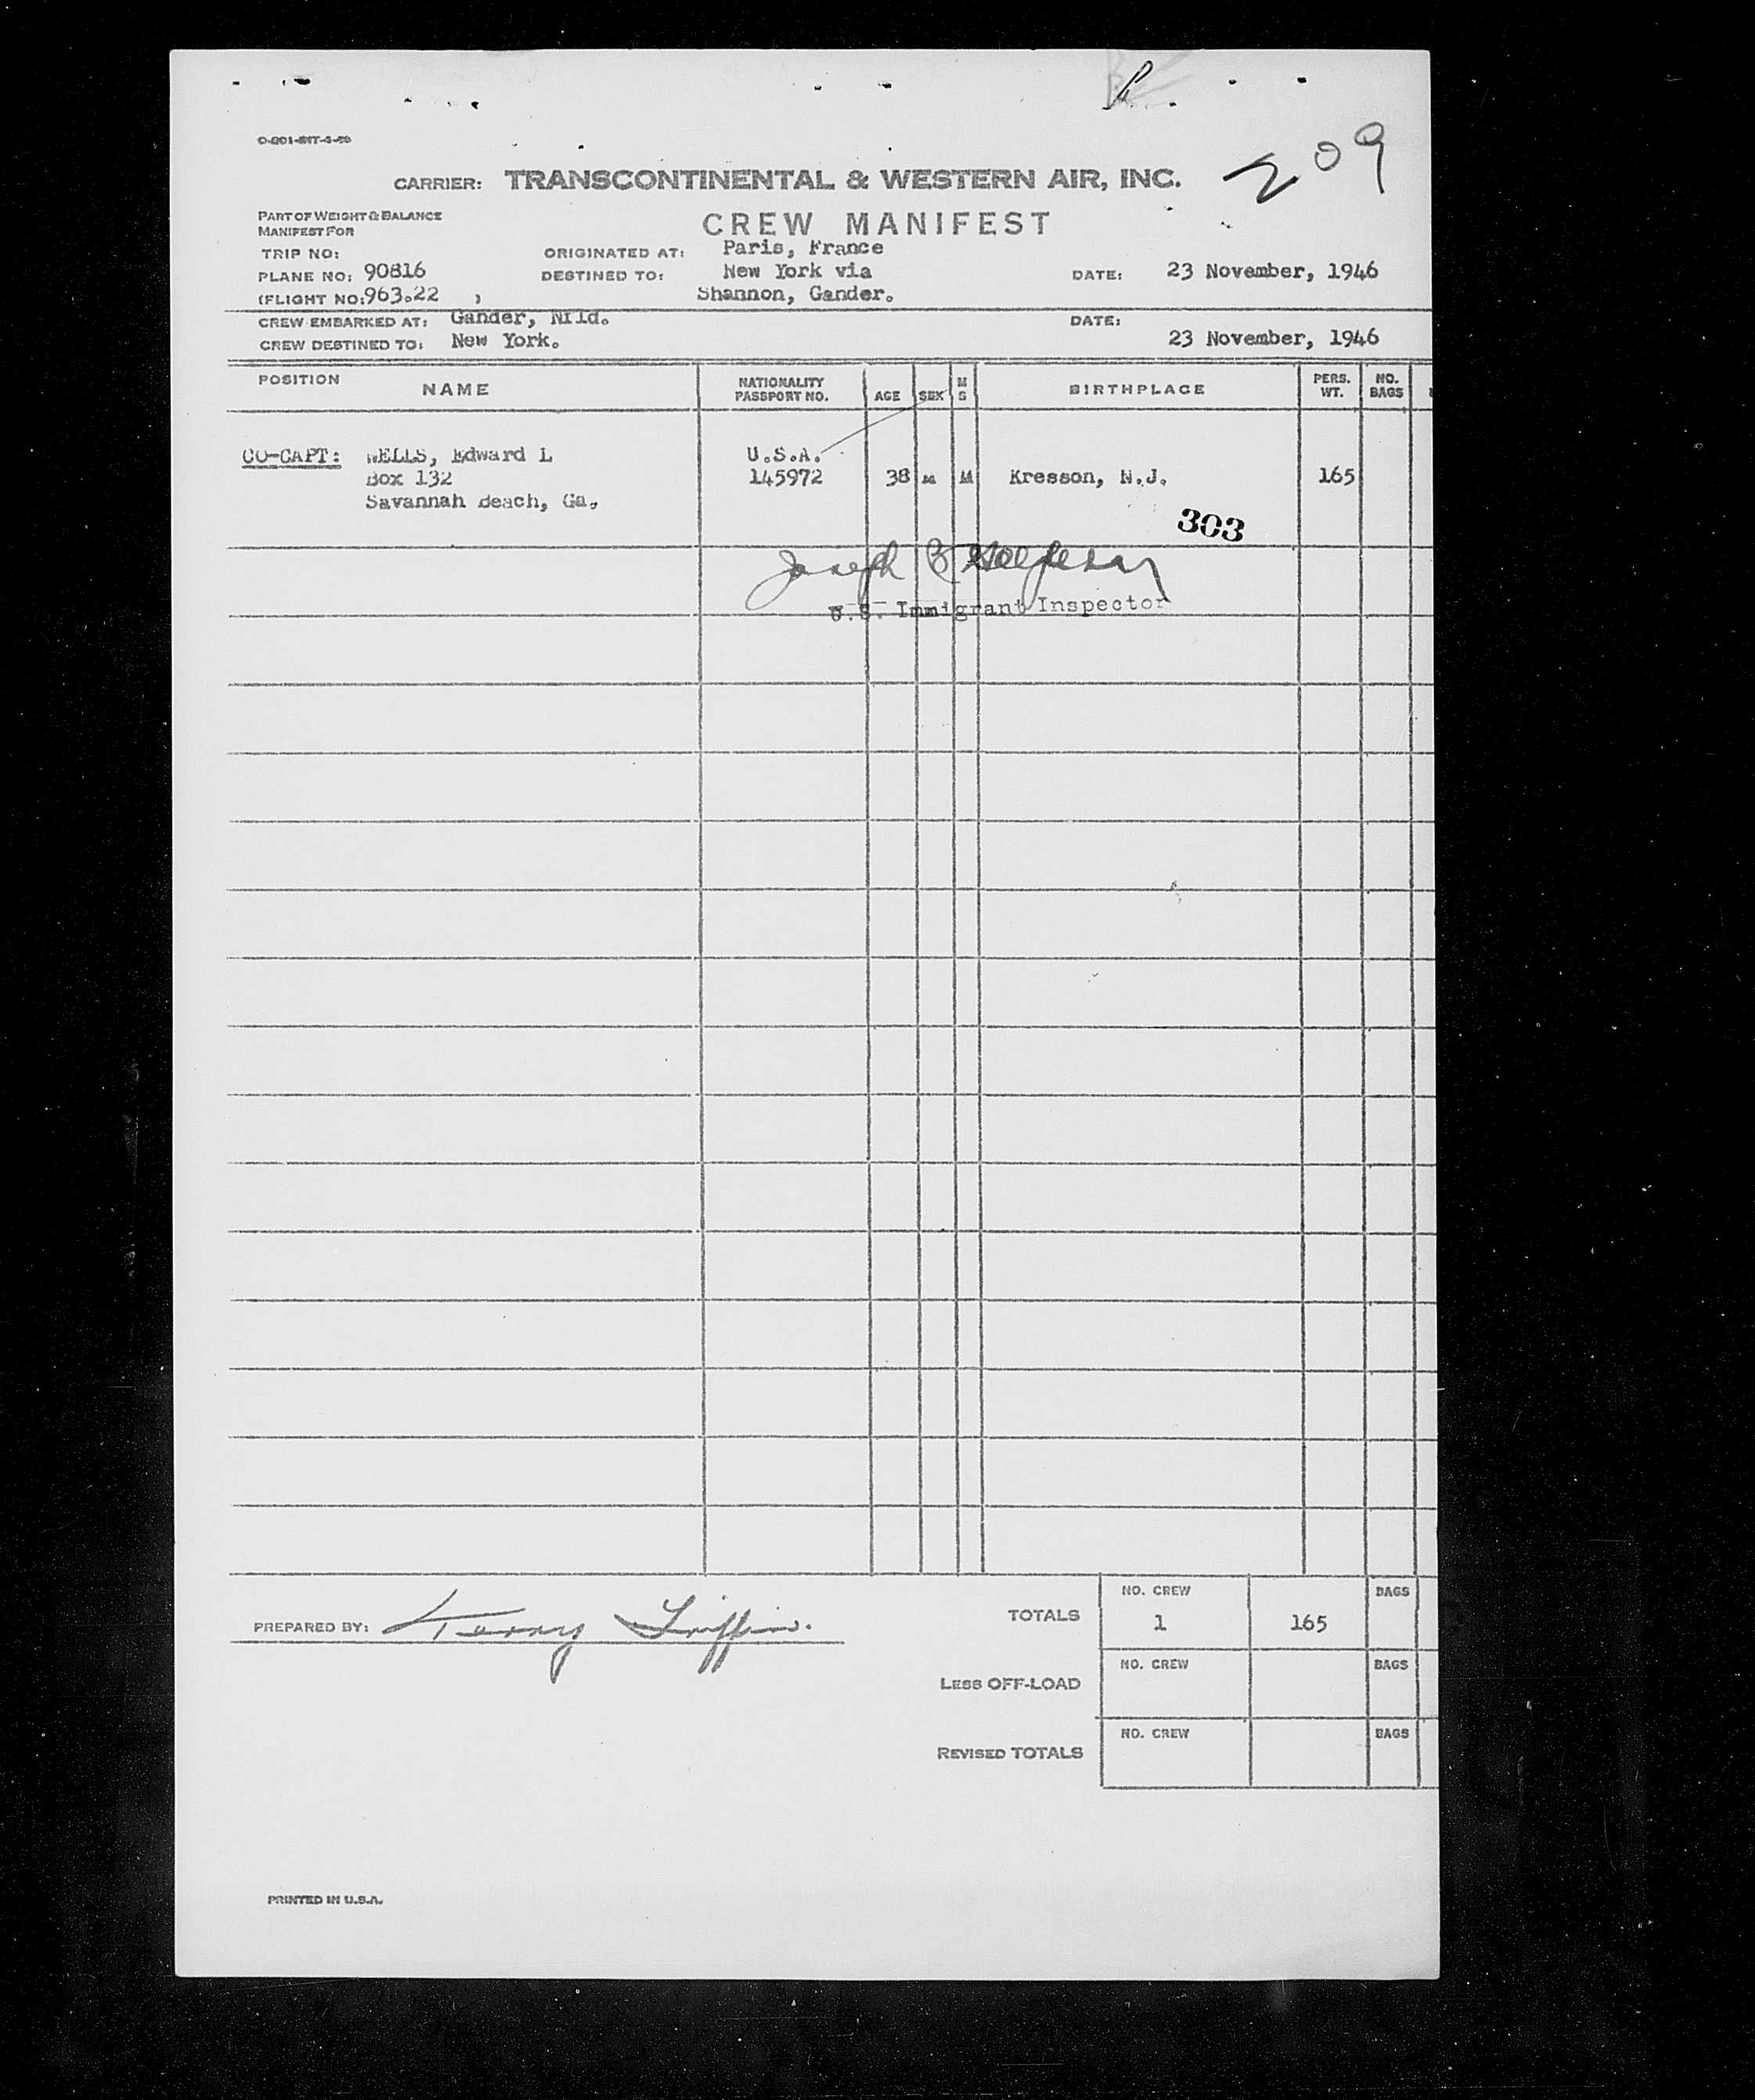 209
CARRIER: TRANSCONTINENTAL & WESTERN AIR, INC.
PART OF WEIGHT & BALANCE
MANIFEST FOR
CREW MANIFEST
TRIP NO: ORIGINATED AT: Paris, France
PLANE NO: 90816 DESTINED TO: New York via DATE: 23 November, 1946
(FLIGHT NO: 963.22 ) Shannon, Gander.
CREW EMBARKED AT: Gander, Nfld. DATE:
CREW DESTINED TO: New York. 23 November, 1946
POSITION NAME NATIONALITY PASSPORT NO. AGE SEX M S BIRTHPLACE PERS. WT. NO. BAGS
CO-CAPT: WELLS, Edward L U.S.A.
Box 132 145972 38 M M Kresson, N.J. 165
Savannah Beach, Ga.
303
Joseph
U.S. Immigrant Inspector
NO. CREW BAGS
PREPARED BY: Terry Griffin. TOTALS 1 165
NO. CREW BAGS
LESS OFF-LOAD
NO. CREW BAGS
REVISED TOTALS
PRINTED IN U.S.A.